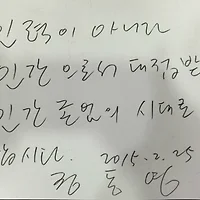 인력이 아니라
인간으로서 대접받
인간 존엄의 시대로
합시다. 2015.2.25
정동영